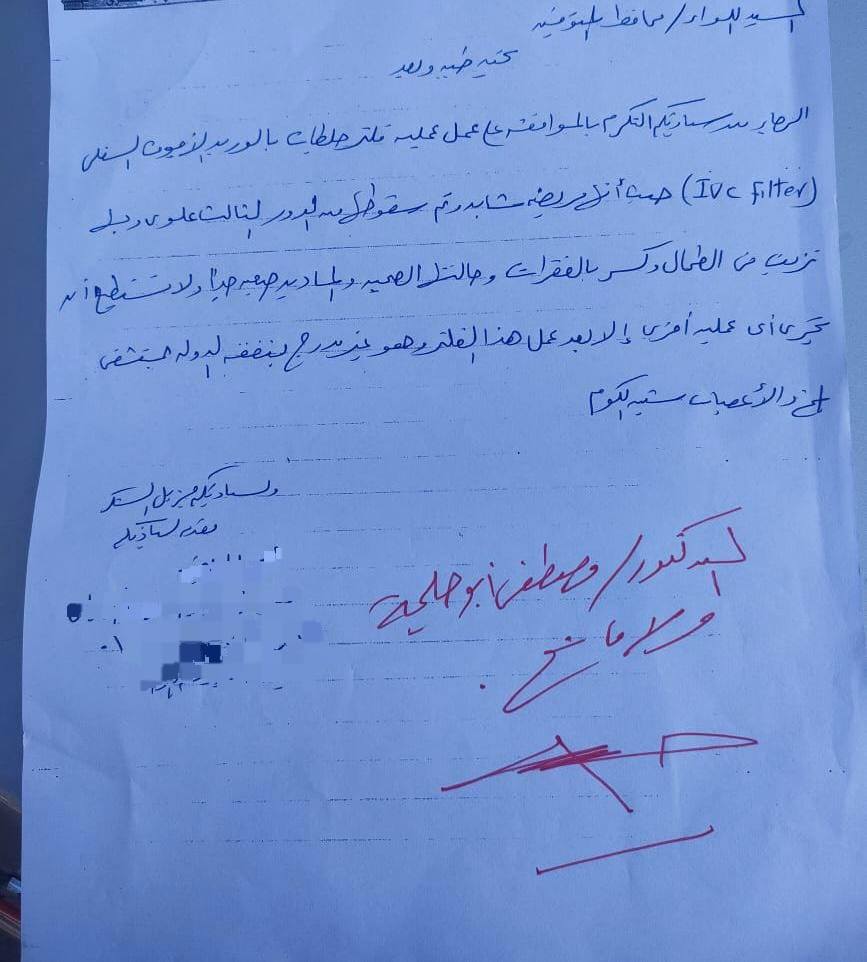 السيد اللواء / محافظ المنوفية
تحية طيبة وبعد
الرجاء من سيادتكم التكرم بالموافقة على عمل عملية فلتر جلطات بالوريد الأجوف السفلى
(IVC filter) حيث أنها مريضة شابة وتم سقوطها من الدور الثالث علوى وبها
نزيف فى الطحال وكسر بالفقرات وحالتها الصحية والمادية صعبة جداً ولا تستطيع أن
تجرى أى عملية أخرى إلا بعد عمل هذا الفلتر وهو غير مدرج بنفقة الدولة بمستشفى
المخ والأعصاب شبين الكوم
ولسيادتكم جزيل الشكر
مقدمه لسيادتكم
السيد دكتور / مصطفى أبو حليمة
ولا مانع